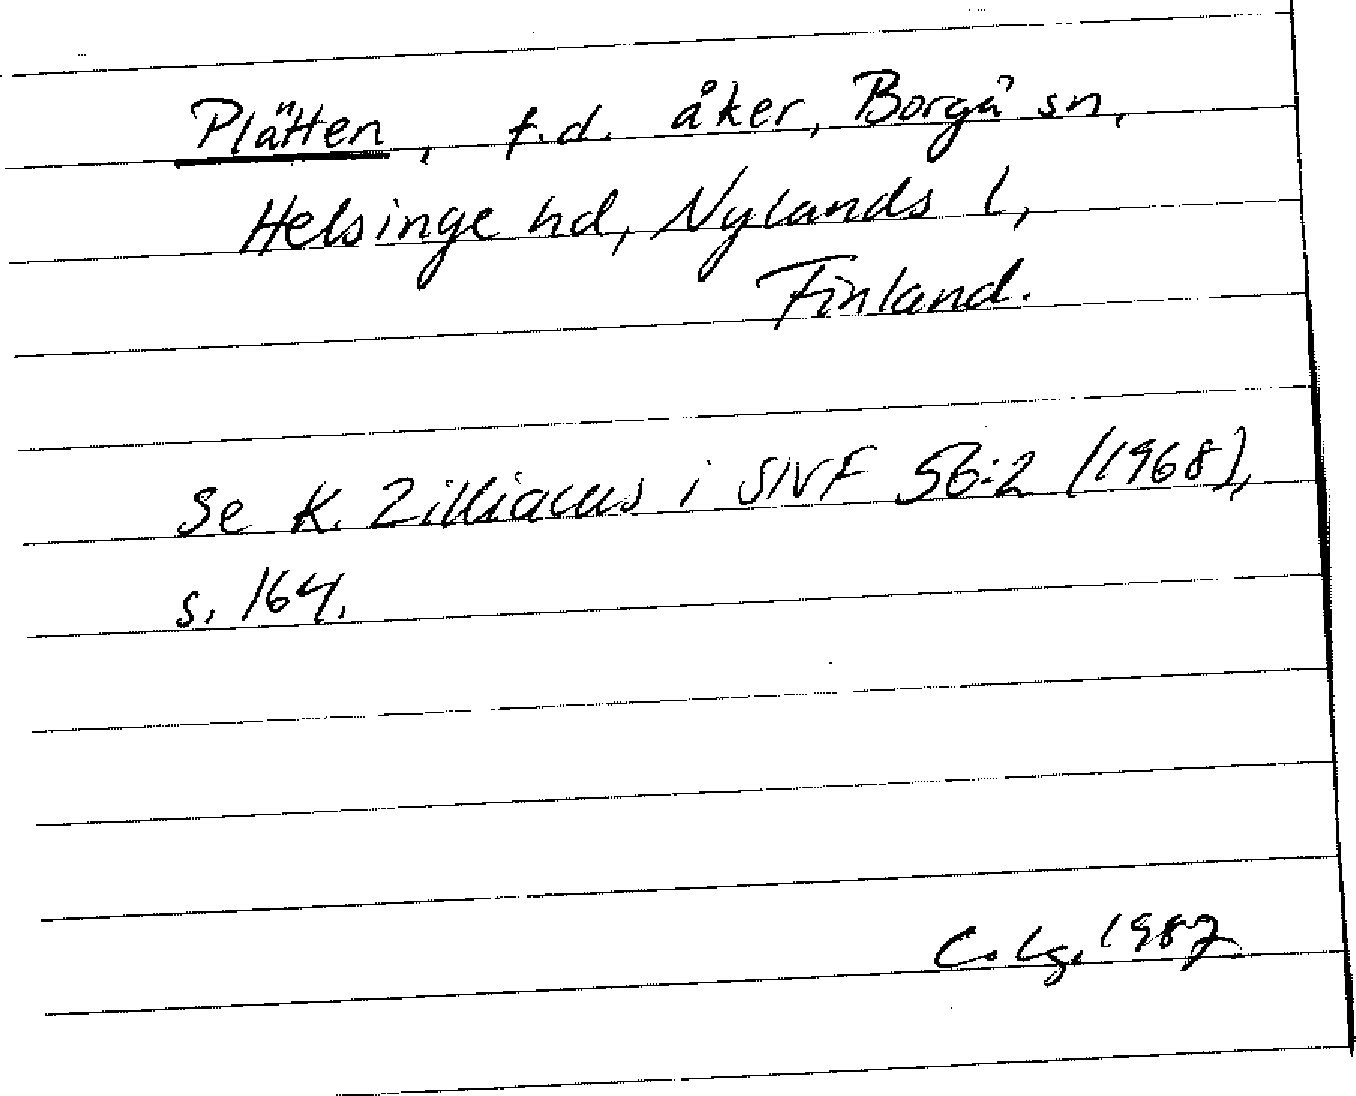 Plätten, f.d. åker, Borgå sn,
Helsinge hd, Nylands l,
Finland.
Se K. Zilliacus i SNF 56:2 (1968),
s. 164.
C. Lg. 1987